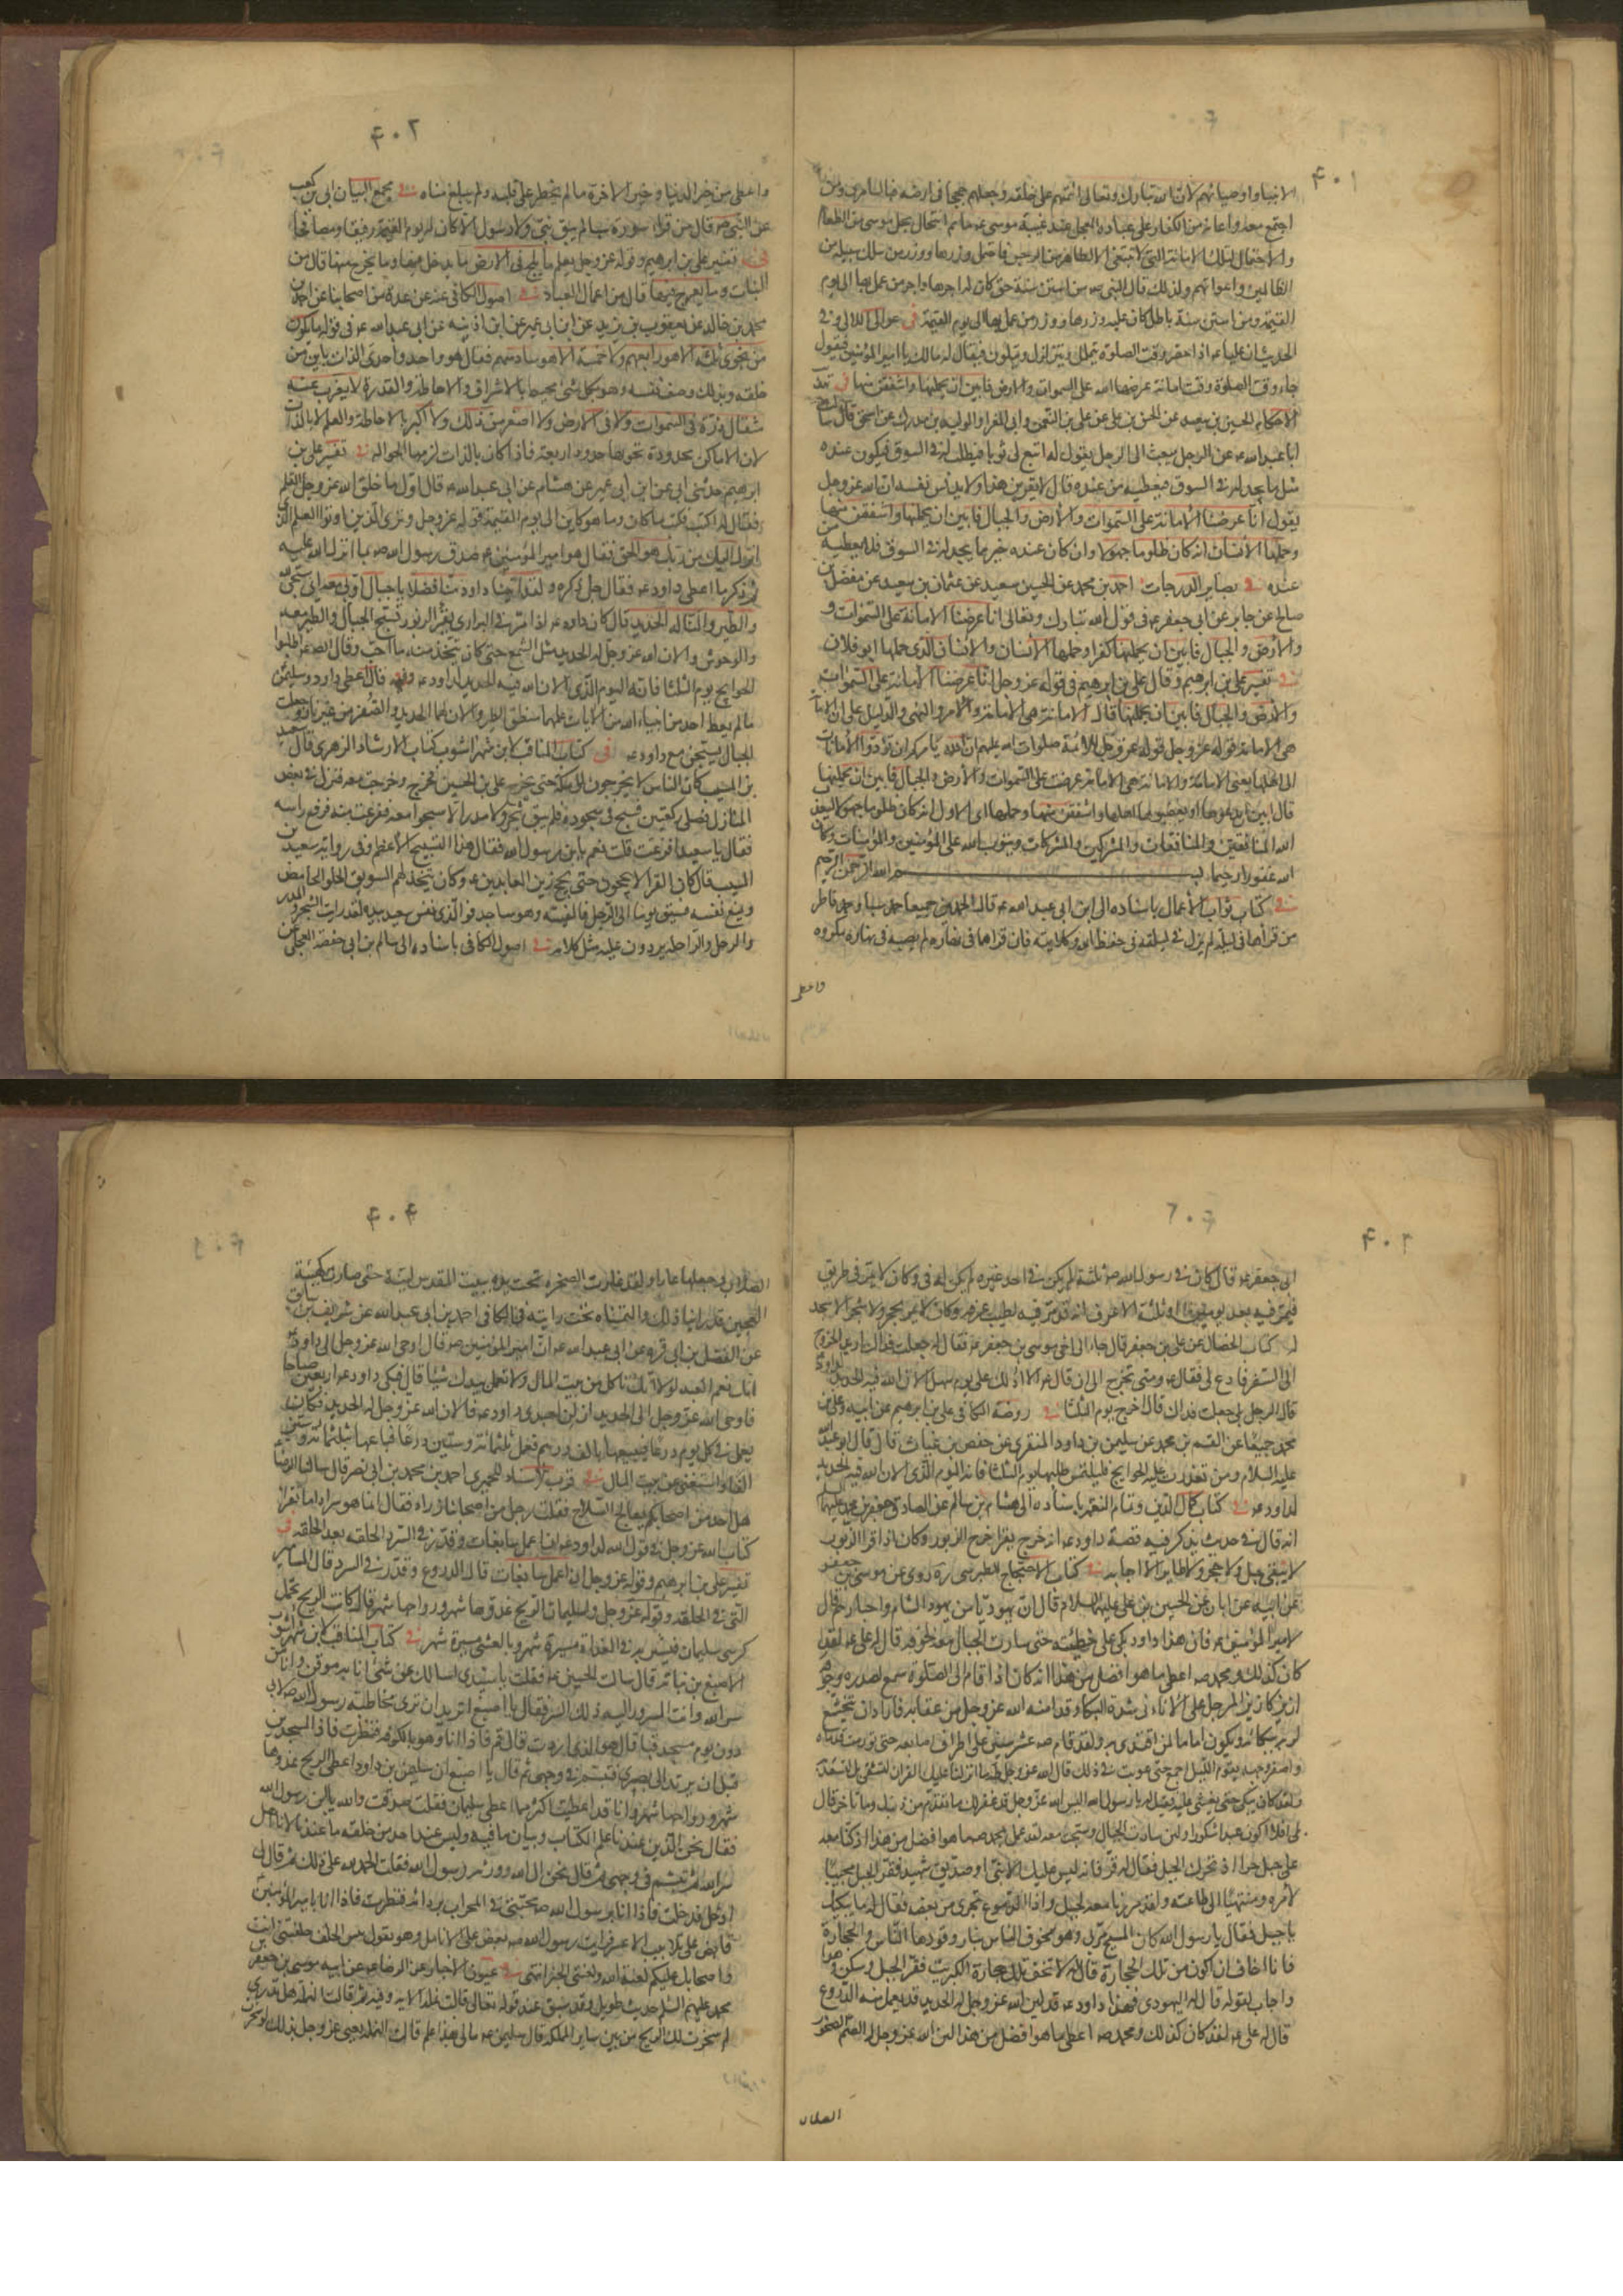 ۴۰۱
الانبياء واوصيائهم لان الله تبارك وتعالى ائتمنهم على خلقه وجعلهم حججا فى ارضه فبالسامرى ومن
اجتمع معه واعانه من الكفار على عبادة العجل عند غيبة موسى ع ما تم انتحال محل موسى من الطغام
والاحتمال لتلك الامانة التى لا تنبغى الا لطاهر من الرجس فاحتمل وزرها ووزر من سلك سبيله من
الظالمين واعوانهم ولذلك قال النبى ص من استن سنة حق كان له اجرها واجر من عمل بها الى يوم
القيمة ومن استن سنة باطل كان عليه وزرها ووزر من عمل بها الى يوم القيمة فى عوالى اللالى وفى
الحديث ان عليا ع اذا حضر وقت الصلوة يتململ ويتزلزل ويتلون فيقال له مالك يا امير المؤمنين فيقول
جاء وقت الصلوة وقت امانة عرضها الله على السموات والارض فابين ان يحملنها واشفقن منها فى تهذيب
الاحكام الحسين بن سعيد عن الحسن بن على عن على بن النعمان وابى المغرا والوليد بن مدرك عن اسحق قال سالت
ابا عبد الله ع عن الرجل يبعث الى الرجل يقول له ابتع لى ثوبا فيطلب له فى السوق فيكون عنده
مثل ما يجد له فى السوق فيعطيه من عنده قال لا يقربن هذا ولا يدنس نفسه ان الله عز وجل
يقول انا عرضنا الامانة على السموات والارض والجبال فابين ان يحملنها واشفقن منها
وحملها الانسان انه كان ظلوما جهولا وان كان عنده خير مما يجد له فى السوق فلا يعطيه من
عنده فى بصاير الدرجات احمد بن محمد عن الحسين سعيد عن عثمان بن سعيد عن مفضل بن
صالح عن جابر عن ابى جعفر ع فى قول الله تبارك وتعالى انا عرضنا الامانة على السموات و
والارض والجبال فابين ان يحملنها كفرا وحملها الانسان والانسان الذى حملها ابو فلان
فى تفسير على بن ابرهيم وقال على بن ابرهيم فى قوله عز وجل انا عرضنا الامانة على السموات
والارض والجبال فابين ان يحملنها قال الامانة هى الامامة والامر والنهى والدليل على ان الامانة
هى الامامة قوله عز وجل قوله عز وجل للائمة صلوات الله عليهم ان الله يامركم ان تؤدوا الامانات
الى اهلها يعنى الامامة والامانة هى الامامة عرضت على السموات والارض والجبال فابين ان يحملنها
قال ابين ان يدعوها او يغصبوها اهلها واشفقن منها وحملها اى الاول انه كان ظلوما جهولا ليعذب
الله المنافقين والمنافقات والمشركين والمشركات ويتوب الله على المؤمنين والمؤمنات وكان
الله غفورا رحيما بسم الله الرحمن الرحيم
فى كتاب ثواب الاعمال باسناده الى ابن ابى عبد الله ع قال الحمدين جميعا حمد سبا وحمد فاطر
من قرأهما فى ليلة لم يزل فى ليلته فى حفظ الله وكلايته فان قراهما فى نهاره لم يصبه فى نهاره مكروه
واعطى
۴۰۲
واعطى من خير الدنيا وخير الاخرة ما لم يخطر على قلبه ولم يبلغ مناه فى مجمع البيان ابى بن كعب
عن النبى ص قال من قرأ سورة سبا لم يبق نبى ولا رسول الا كان له يوم القيمة رفيقا ومصافحا
فى تفسير على بن ابرهيم وقوله عز وجل يعلم ما يلج فى الارض ما يدخل فيها وما يخرج منها قال من
النبات وما يعرج فيها قال من اعمال العباد فى اصول الكافى عنه عن عدة من اصحابنا عن احمد بن
محمد بن خالد عن يعقوب بن يزيد عن ابن ابى عمير عن ابن اذينه عن ابى عبد الله ع فى قوله ما يكون
من نجوى ثلثة الا هو رابعهم ولا خمسة الا هو سادسهم فقال هو واحد واحدى الذات باين من
خلقه وبذلك وصف نفسه وهو بكل شئ محيط بالاشراف والاحاطة والقدرة لا يعزب عنه
مثقال ذرة فى السموات ولا فى الارض ولا اصغر من ذلك ولا اكبر بالاحاطة والعلم لا بالذات
لان الاماكن محدودة تحويها حدود اربعة فاذا كان بالذات لزمها الحواية فى تفسير على بن
ابرهيم حدثنى ابى عن ابن ابى عمير عن هشام عن ابى عبد الله ع قال اول ما خلق الله عز وجل القلم
فقال له اكتب فكتب ما كان وما هو كاين الى يوم القيمة قوله عز وجل ويرى الذين اوتوا العلم الذى
انزل اليك من ربك هو الحق فقال هو امير المؤمنين ع صدق رسول الله ص بما انزل الله عليه
ثم ذكر ما اعطى داود ع فقال جل ذكره ولقد اتينا داود منا فضلا يا جبال اوبى معه اى سبحى لله
والطير والنا له الحديد قال كان داود ع اذا مر فى البرارى يقرأ الزبور تسبح الجبال والطير معه
والوحوش والان الله عز وجل له الحديد مثل الشمع حتى كان يتخذ منه ما احب وقال الصادق ع اطلبوا
الحوايج يوم الثلثا فانه اليوم الذى الان الله فيه الحديد لداود ع وقوله قال اعطى داود وسليمن
ما لم يعط احد من انبياء الله من الايات علمهما منطق الطير والان لهما الحديد والصفر من غير نار وجعلت
الجبال يسبحن مع داود ع فى كتاب المناقب لابن شهراشوب كتاب الارشاد الزهرى قال سعيد
بن المسيب كان الناس لا يخرجون الى مكة حتى يخرج على بن الحسين فخرج وخرجت معه فنزل فى بعض
المنازل فصلى ركعتين فسبح فى سجوده فلم يبق شجر ولا مدر الا سبحوا معه ففزعت منه فرفع راسه
فقال يا سعيد افزعت قلت نعم يابن رسول الله فقال هذا التسبيح الاعظم وفى رواية سعيد بن
المسيب قال كان القراء لا يحجون حتى يحج زين العابدين ع وكان يتخذ لهم السويق الحلو الحامض
ويمنع نفسه فسبق يوما الى الرحل فالفيته وهو ساجد فو الذى نفس سعيد بيده لقد رايت الشجر والمدر
والرحل والراحلة يردون عليه مثل كلامه فى اصول الكافى باسناده الى سالم بن ابى حفصة العجلى عن
۴۰۳
ابى جعفر ع قال كان فى رسول الله ص ثلثة لم يكن فى احد غيره لم يكن له فئ وكان لا يمر فى طريق
فيمر فيه بعد يومين او ثلثة الا عرف انه قد مر فيه لطيب عرفه وكان لا يمر بحجر ولا شجر الا سجد
له كتاب الخصال عن على بن جعفر قال جاء الى اخى موسى بن جعفر ع فقال له جعلت فداك اريد الخروج
الى السفر فادع لى فقال ع ومتى تخرج الى ان قال ع الا ادلك على يوم سهل الان الله فيه الحديد لداود ع
قال الرجل بلى جعلت فداك قال اخرج يوم الثلثا فى روضة الكافى على بن ابرهيم عن ابيه وعلى بن
محمد جميعا عن القسم بن محمد عن سليمن بن داود المنقرى عن حفص بن غياث قال قال ابو عبد الله
عليه السلام ومن تعذرت عليه الحوايج فليلتمس طلبها يوم الثلثا فانه اليوم الذى الان الله فيه الحديد
لداود ع فى كتاب كمال الدين وتمام النعمة باسناده الى هشام بن سالم عن الصادق جعفر بن محمد عليهما السلام
انه قال فى حديث يذكر فيه قصة داود ع انه خرج يقرأ الزبور وكان اذا قرأ الزبور
لا يبقى جبل ولا حجر ولا طاير الا اجابه فى كتاب الاحتجاج للطبرسى ره روى عن موسى بن جعفر
عن ابيه عن ابائه عن الحسين بن على عليهم السلام قال ان يهوديا من يهود الشام واحبارهم قال
لامير المؤمنين ع فان هذا داود بكى على خطيئته حتى سارت الجبال معه لخوفه قال له على ع لقد
كان كذلك ومحمد ص اعطى ما هو افضل من هذا انه كان اذا قام الى الصلوة سمع لصدره وجوفه
ازيز كازيز المرجل على الاثافى من شدة البكاء وقد امنه الله عز وجل من عقابه فاراد ان يتخشع
لربه ببكائه ويكون اماما لمن اقتدى به ولقد قام ص عشر سنين على اطراف اصابعه حتى تورمت قدماه
واصفر وجهه يقوم الليل اجمع حتى عوتب فى ذلك قال الله عز وجل طه ما انزلنا عليك القران لتشقى بل لتسعد به
ولقد كان يبكى حتى يغشى عليه فقيل له يا رسول الله اليس الله عز وجل قد غفر لك ما تقدم من ذنبك وما تاخر قال
بلى افلا اكون عبدا شكورا ولئن سارت الجبال وسبحت معه لقد عمل محمد ص ما هو افضل من هذا اذ كنا معه
على جبل حراء اذ تحرك الجبل فقال له قر فانه ليس عليك الا نبى او صديق شهيد فقر الجبل مجيبا
لامره ومنتهيا الى طاعته ولقد مررنا معه لجبل واذا الدموع تجرى من بعضه فقال له ما يبكيك
يا جبل فقال يا رسول الله كان المسيح مر بى وهو يخوف الناس بنار وقودها الناس والحجارة
فانا اخاف ان اكون من تلك الحجارة قال له لا تخف تلك حجارة الكبريت فقر الجبل وسكن وهدا
واجاب لقوله قال له اليهودى فهذا داود ع قد لين الله عز وجل له الحديد قد يعمل منه الدروع
قال له على ع لقد كان كذلك ومحمد ص اعطى ما هو افضل من هذا لين الله عز وجل له الصم الصخور
الصلاب
۴۰۴
الصلاب وجعلها غارا ولقد غارت الصخرة تحت يده ببيت المقدس لينة حتى صارت كهيئة
العجين قد راينا ذلك والتمسناه تحت رايته فى الكافى احمد بن ابى عبد الله عن شريف بن سابق
عن الفضل بن ابى قره عن ابى عبد الله ع ان امير المؤمنين ص قال اوحى الله عز وجل الى داود ع
انك نعم العبد لولا انك تاكل من بيت المال ولا تعمل بيدك شيئا قال فبكى داود ع اربعين صباحا
فاوحى الله عز وجل الى الحديد ان لن لعبدى داود ع فالان الله عز وجل له الحديد فكان
يعمل فى كل يوم درعا فيبيعها بالف درهم فعمل ثلثمائة وستين درعا فباعها بثلثمائة وستين
الفا واستغنى عن بيت المال فى قرب الاسناد للحميرى احمد بن محمد بن ابى نصر قال سالت الرضا ع
هل احد من اصحابكم يعالج السلاح فقلت رجل من اصحابنا زراد فقال انما هو سراد اما تقرأ
كتاب الله عز وجل فى قول الله لداود ع ان اعمل سابغات وقدر فى السرد الحلقة بعد الحلقة فى
تفسير على بن ابرهيم وقوله عز وجل ان اعمل سابغات قال الدروع وقدر فى السرد قال المسامير
التى فى الحلقة وقوله عز وجل ولسليمان الريح غدوها شهر ورواحها شهر قال كانت الريح تحمل
كرسى سليمان فتسير به فى الغداة مسيرة شهر وبالعشى مسيرة شهر فى كتاب المناقب لابن شهراشوب
الاصبغ بن نباته قال سالت الحسين ع فقلت يا سيدى اسالك عن شئ انا به موقن وانه من
سر الله وانت المسرور اليه ذلك السر فقال يا اصبغ اتريد ان ترى مخاطبة رسول الله ص لابى
دون يوم مسجد قبا قال هو الذى اردت قال قم فاذا انا وهو بالكوفه فنظرت فاذا المسجد من
قبل ان يرتد الى بصرى فتبسم فى وجهى ثم قال يا اصبغ ان سليمن بن داود اعطى الريح غدوها
شهر ورواحها شهر وانا قد اعطيت اكثر مما اعطى سليمان فقلت صدقت والله يابن رسول الله
فقال نحن الذين عندنا علم الكتاب وبيان ما فيه وليس عند احد من خلقه ما عندنا لانا اهل
سر الله ثم تبسم فى وجهى ثم قال نحن ال الله وورثة رسول الله فقلت الحمد لله على ذلك ثم قال لى
ادخل فدخلت فاذا انا برسول الله ص محتبئ فى المحراب بردائه فنظرت فاذا انا بامير المؤمنين
قابض على تلابيب الاعسر فرايت رسول الله ص يعض على الانامل وهو يقول بئس الخلف خلفتنى انت
واصحابك عليكم لعنة الله ولعنتى الخبر انتهى فى عيون الاخبار عن الرضا ع عن ابيه موسى بن جعفر
محمد عليهم السلام حديث طويل لقد سبق عند قوله تعالى قالت نملة الاية وفيه ثم قالت النملة هل تدرى
لم سخرت لك الريح من بين ساير المملكة قال سليمن ع ما لى بهذا علم قالت النملة يعنى عز وجل بذلك لو سخرت